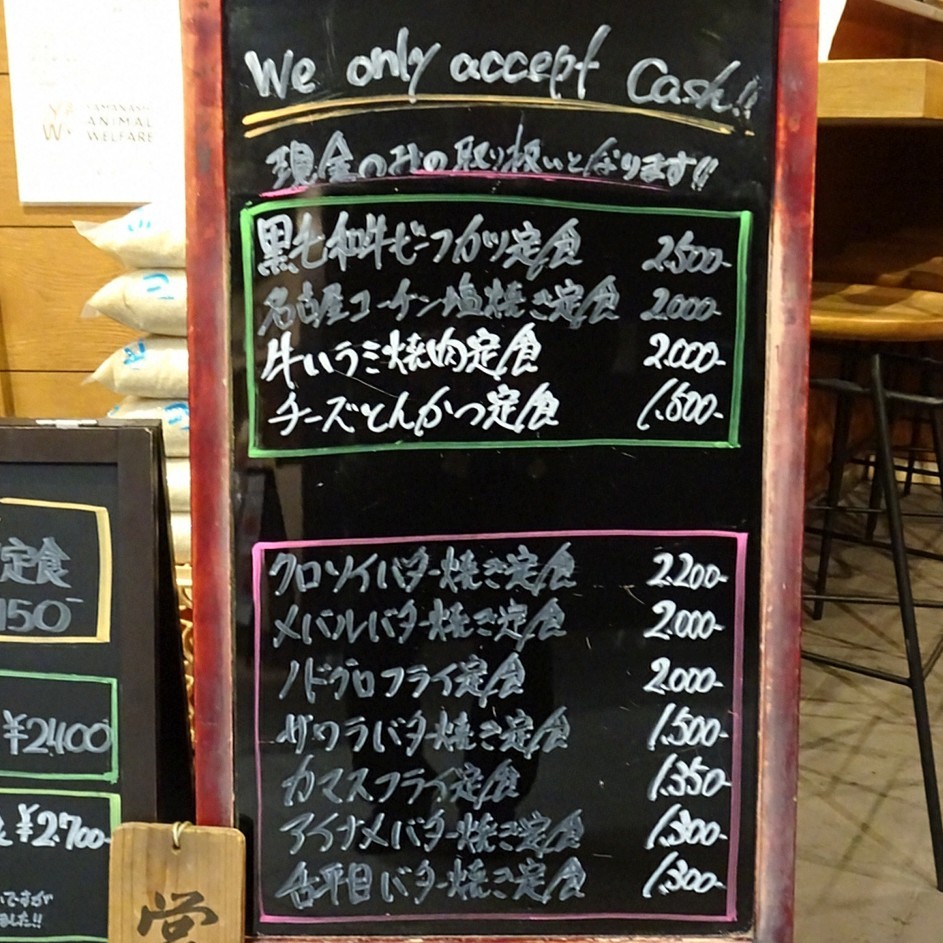 We only accept Cash!!
現金のみの取り扱いとなります!!
黒毛和牛ビーフカツ定食 2,500-
名古屋コーチン塩焼き定食 2,000-
牛ハラミ焼肉定食 2,000-
チーズとんかつ定食
クロソイバター焼き定食 2,200-
メバルバター焼き定食 2,000-
ノドグロフライ定食 2,000-
サワラバター焼き定食 1,500-
カマスフライ定食 1,350-
アイナメバター焼き定食 1,300-
舌平目バター焼き定食 1,300-
ANIMAL
WELFARE
定食
150-
¥2400
¥2,700-
ですが
ました!!
営